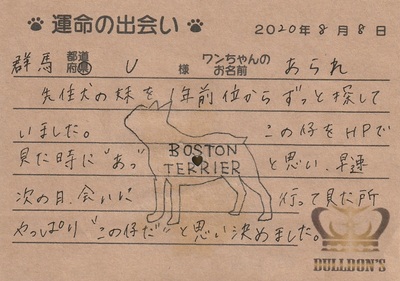 運命の出会い 2020年8月8日
群馬 都道府県 U 様 ワンちゃんのお名前 あられ
先住犬の妹を1年前位からずっと探して
いました。 この仔をHPで
BOSTON
見た時に"あっ" と思い、早速
TERRIER
次の日、会いに 行って見た所
やっぱり"この仔だ"と思い決めました。
BULLDON'S